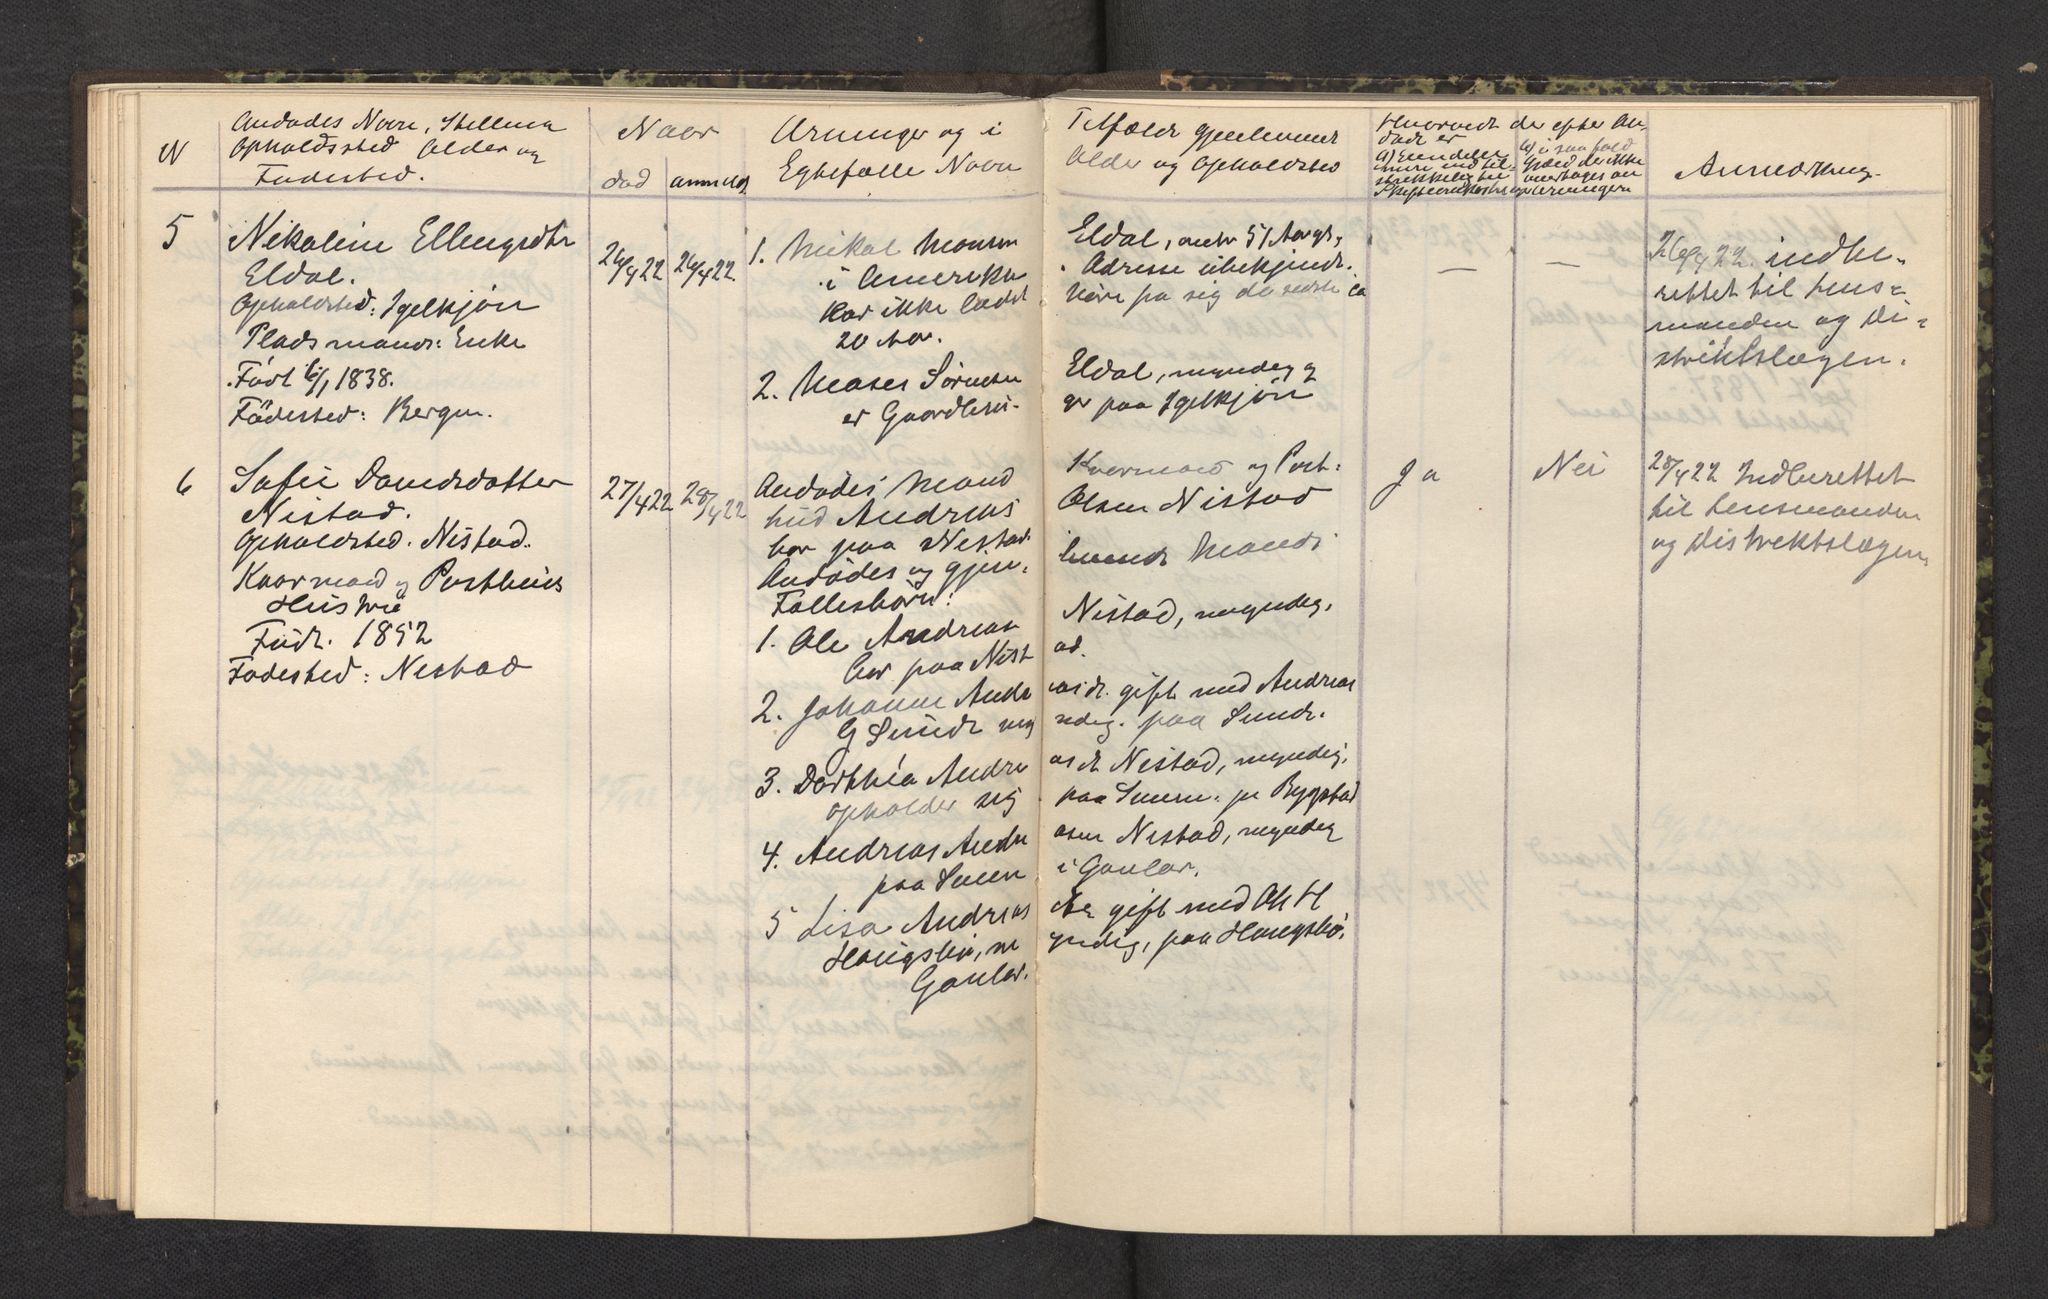 N
Avdødes Navn, Stilling
Opholdssted Alder og
Fødested.
Naar
død
anmeldt
Arvinger og i
Egtefælle Navn
Tilfælde gjenlevende
Alder og Opholdsted
Hvorvidt der efter Av-
døde er
Anmerkning.
5
Nikoline Ellingsdtr
Eldal.
Opholdsted: Igelkjøn
Pladsmands: Enke
Født 6/1 1838.
Fødested: Bergen.
26/4 22
26/4 22
1. Mikal Monsen
i Amerika
har ikke ladet
20 Aar.
2. Moses Sørensen
er Gaardbru-
Eldal, omtr 51 Aargl,
Adresse ubekjendt.
høre fra sig de sidste ca
Eldal, myndig og
ger paa Igelkjøn
—
—
26/4 22. indbe-
rettet til Lens-
manden og Di-
striktslægen.
6
Sofie Danielsdatter
Nistad.
Opholdsted. Nistad.
Kaarmand og Posthuus
Hustru
Født. 1852
Fødested: Nistad
27/4 22
28/4 22
Avdødes Mand
hed Andreas
bor paa Nistad
Avdødes og gjen-
Fællesbørn:
1. Ole Andreas
bor paa Nist
2. Johanne Andr
G Sunde myn
3. Dorthéa Andre
opholder sig
4. Andreas Andre
paa Sween
5 Lisa Andreas
Haugsbø, m
Gaular.
Kaarmand og Post-
Olsen Nistad
levende Mands
Nistad, myndig,
ad.
asdt. gift med Andreas
ndig. paa Sunde.
asdt Nistad, myndig,
paa Sween. pr Bygstad
asen Nistad, myndig
i Gaular.
gift med Ole H
yndig, paa Haugsbø,
Ja
Nei
28/4 22 Indberettet
til Lensmanden
og Distriktslægen